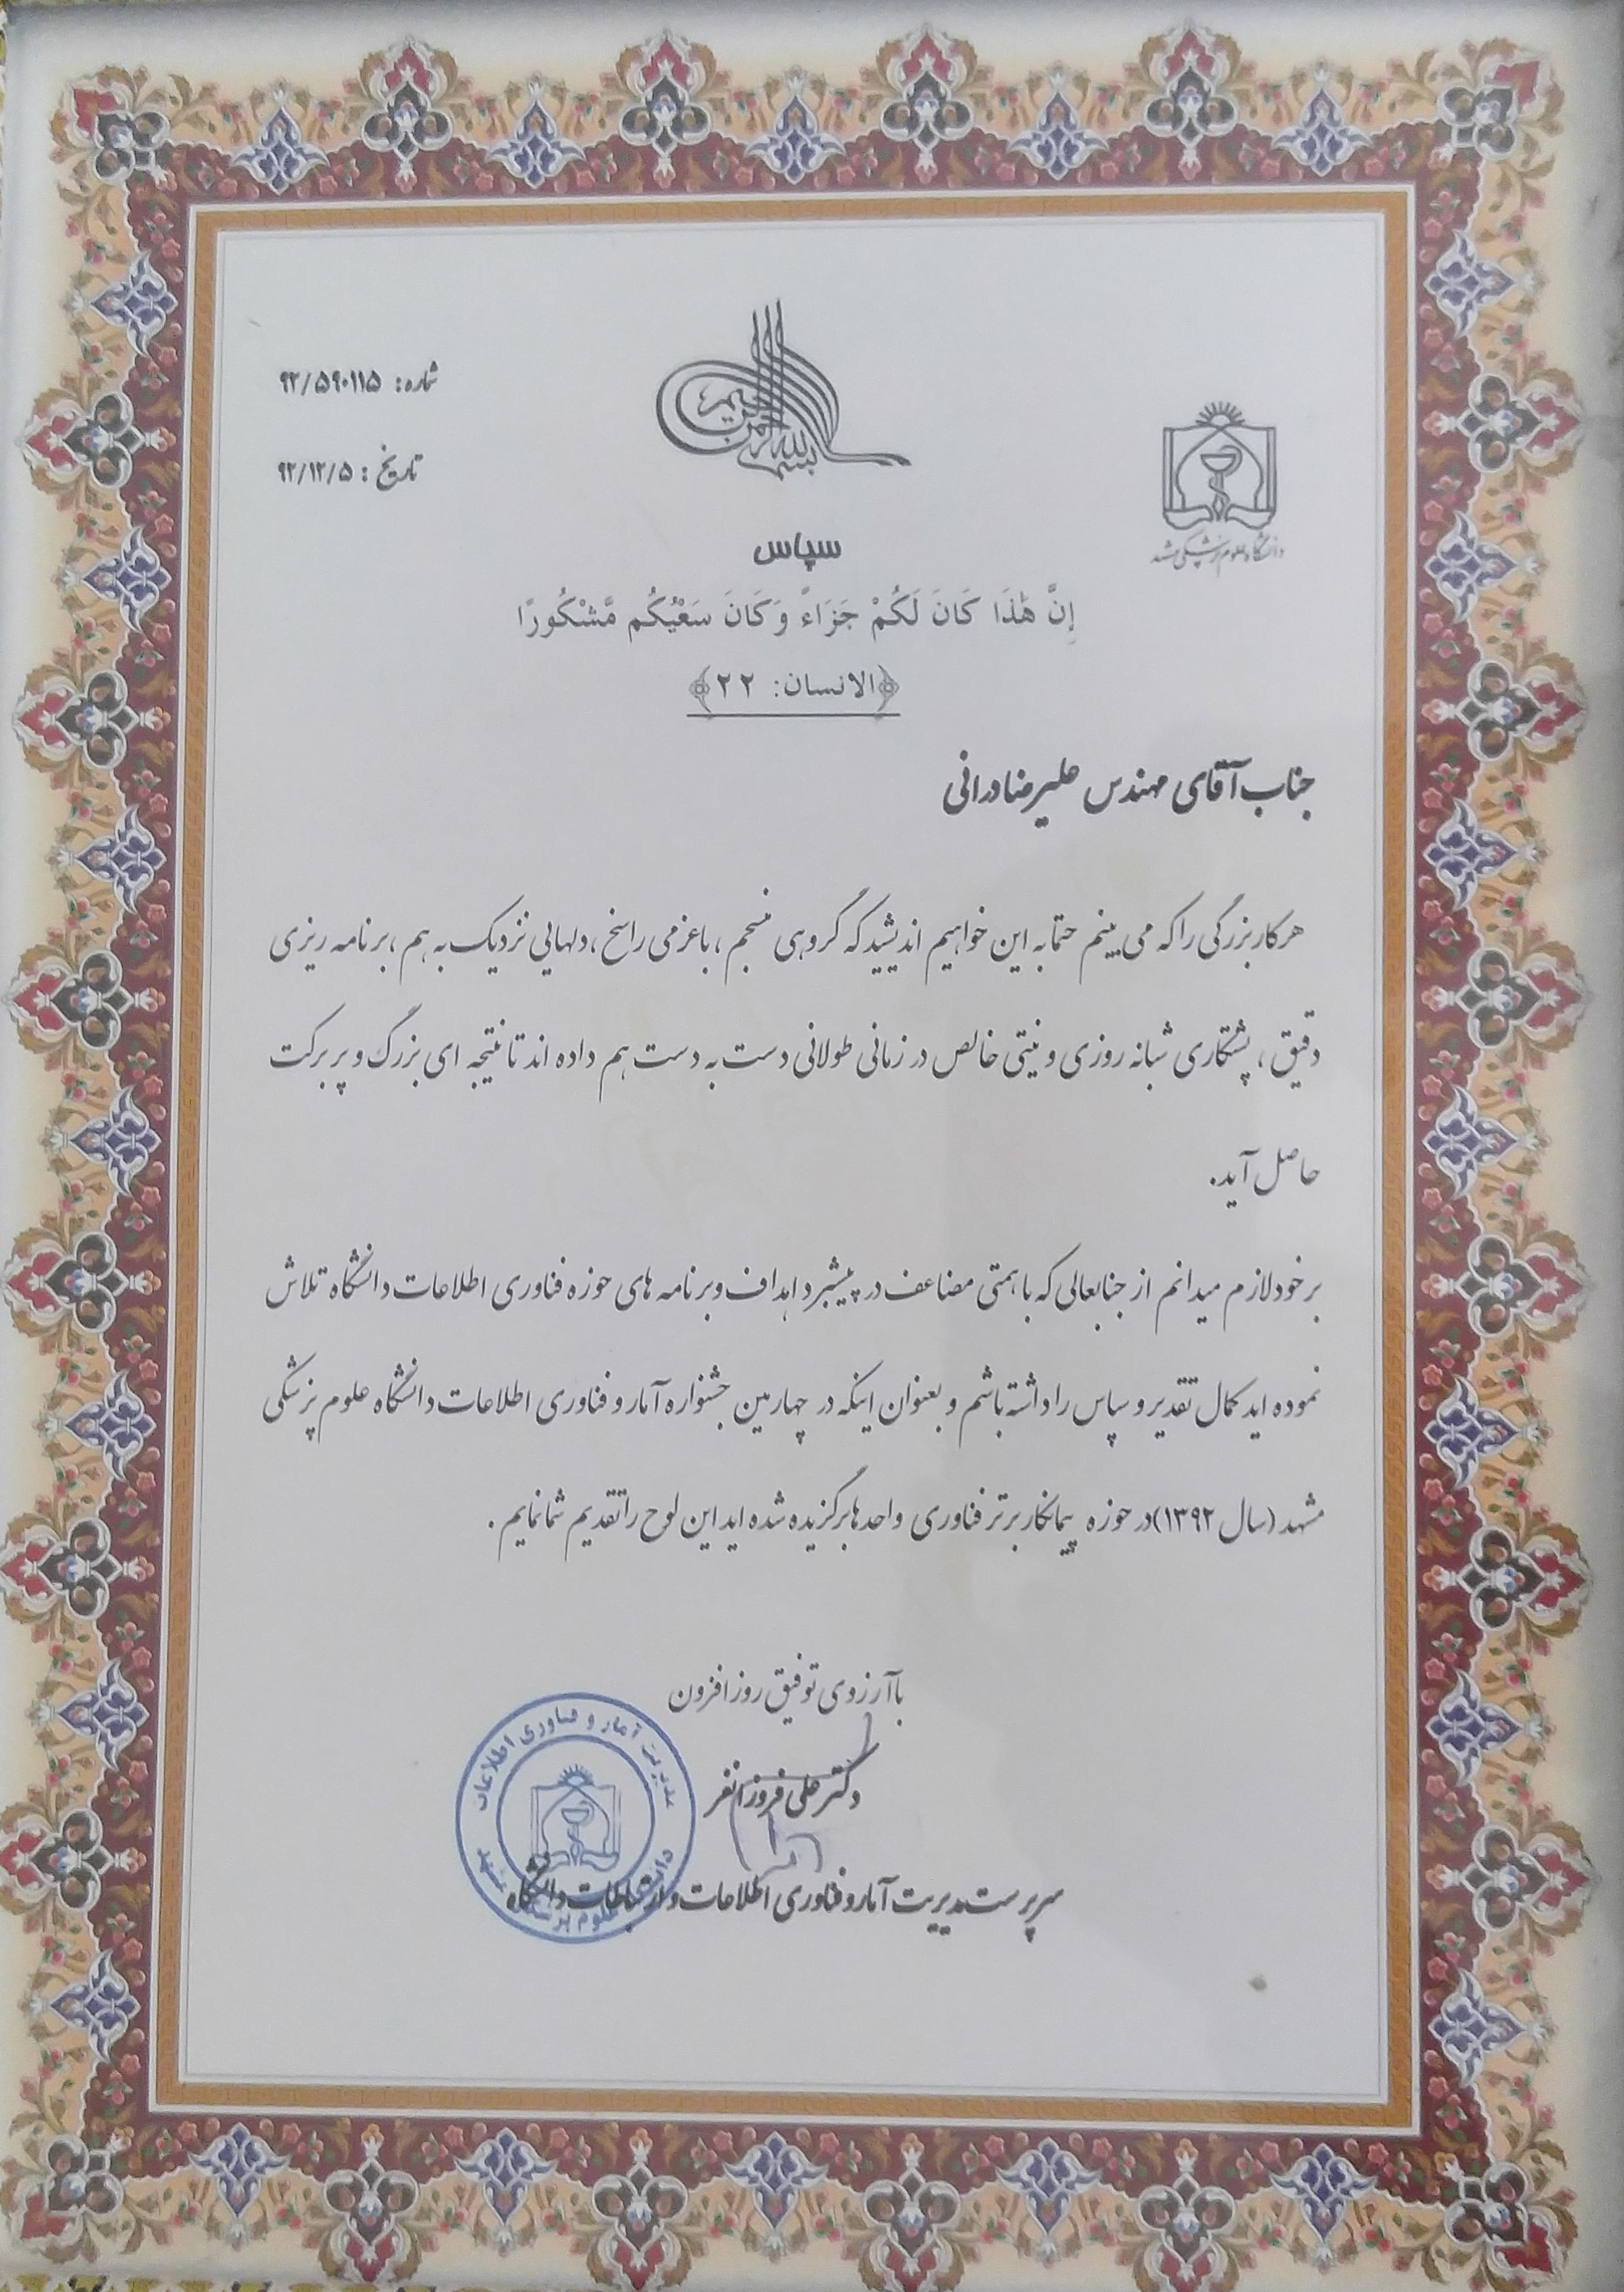 بسم الله الرحمن الرحیم
شماره: ۹۲/۵۹۰۱۱۵
تاریخ: ۹۲/۱۲/۵
دانشگاه علوم پزشکی مشهد
سپاس
إِنَّ هَٰذَا كَانَ لَكُمْ جَزَاءً وَكَانَ سَعْيُكُم مَّشْكُورًا
﴿الانسان: ۲۲﴾
جناب آقای مهندس علیرضا درانی
هر کار بزرگی را که می بینم حتما به این خواهیم اندیشید که گروهی منسجم ، با عزمی راسخ ، دلهایی نزدیک به هم ، برنامه ریزی
دقیق ، پشتکاری شبانه روزی و نیتی خالص در زمانی طولانی دست به دست هم داده اند تا نتیجه ای بزرگ و پر برکت
حاصل آید.
بر خود لازم میدانم از جنابعالی که با همتی مضاعف در پیشبرد اهداف و برنامه های حوزه فناوری اطلاعات دانشگاه تلاش
نموده اید کمال تقدیر و سپاس را داشته باشم و بعنوان اینکه در چهارمین جشنواره آمار و فناوری اطلاعات دانشگاه علوم پزشکی
مشهد (سال ۱۳۹۲) در حوزه پیمانکار برتر فناوری واحدها برگزیده شده اید این لوح را تقدیم شما نمایم .
با آرزوی توفیق روز افزون
دکتر علی فروزانفر
سرپرست مدیریت آمار و فناوری اطلاعات و ارتباطات دانشگاه
مدیریت آمار و فناوری اطلاعات
دانشگاه علوم پزشکی مشهد